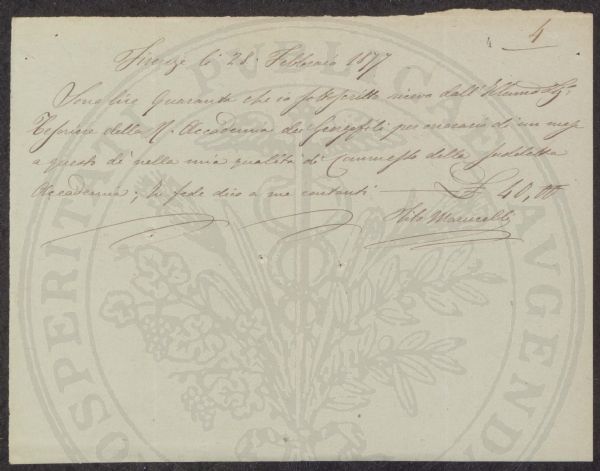 4
4
Firenze lì 28. Febbraio 1877
Sono lire Quaranta che io sottoscritto ricevo dall' Illmo Sig.
Tesoriere della R. Accademia dei Georgofili per onorario di un mese
a questo dì nella mia qualità di Commesso della suddetta
Accademia; In fede dico a me contanti — £ 40,00
Marucelli
PROSPERITATI PUBLICAE AUGENDAE